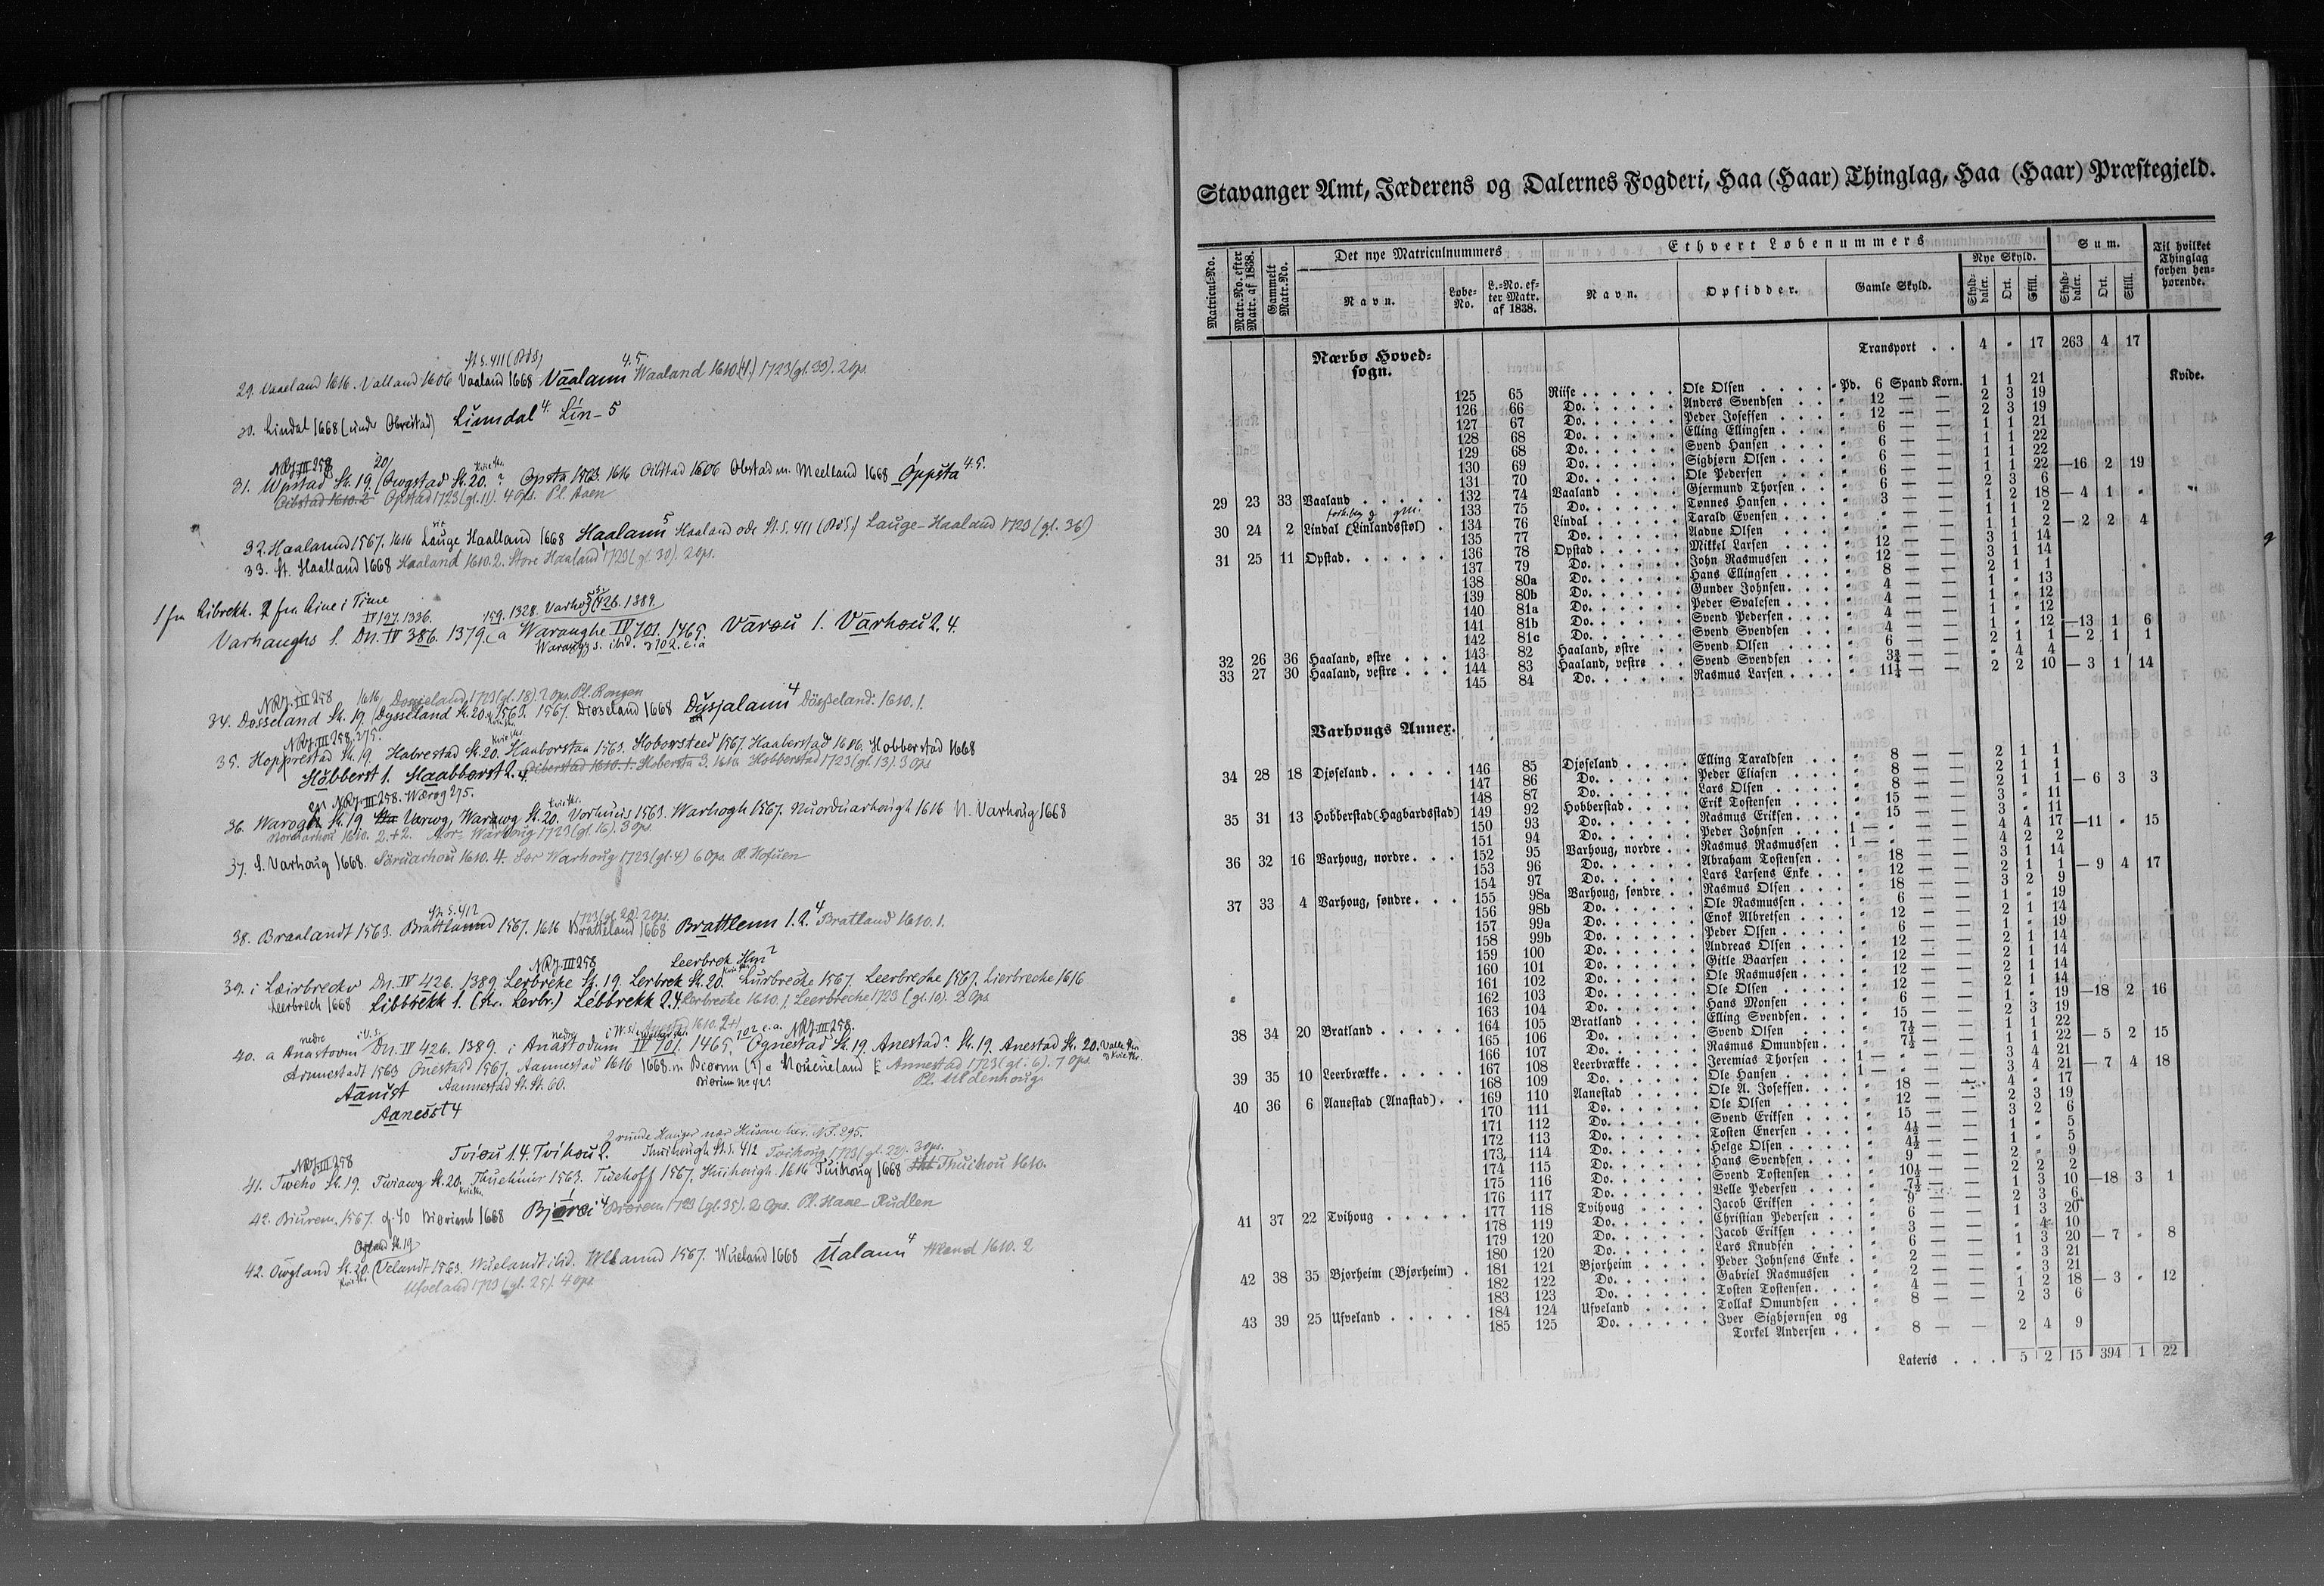 St. S. 411 (Bds)
29. Vaaeland 1616. Valland 1606 Vaaland 1668 Vaalann 4.5 Waaland 1610 (4.) 1723 (gl. 33). 2 Ops.
30. Lindal 1668 (under Obrestad) Liandal 4. Lin- 5
NRJ. III 258
31. Upstad Sk. 19. Owgstad St. 20. ? Opsta 1563. 1616 Oibstad 1606 Obstad m. Meelland 1668 Oppsta 4.5.
Oibstad 1610. 2 Opstad 1723 (gl. 11). 4 Ops. Pl. Aaen
32. Haaland 1567. 1616 Lauge Haalland 1668 Haalann 5 Haaland øde St. S. 411 (Bds.) Lauge-Haaland 1723 (gl. 36)
33. St. Haalland 1668 Haaland 1610. 2. Store Haaland 1723 (gl. 30). 2 Ops.
1 fra Librekk. 2 fra Line i Time
IV 197. 1336. 159. 1328. Varhog 426. 1389.
Varhaughs s. Dn. IV 386. 1379. a Waraughe IV 701. 1465. Varou 1. Varhou 2. 4.
NRJ. III 258 1616 Dosseland 1723 (gl. 18). 2 Ops. Pl. Rongen
34. Dosseland Sk. 19. Dysseland St. 20. 1563. 1567. Diøseland 1668 Dysjalann 4 Døsseland. 1610. 1.
NRJ. III 258. 275.
35. Hopprestad Sk. 19. Habrestad St. 20. Haaborstaa 1563. Hoborsteed 1567. Haaberstad 1606. Hobberstad 1668
Hobberst 1. Haabborst 2. 4. Oiberstad 1610. 1. Hobersta 3. 1616 Hobberstad 1723 (gl. 13). 3 Ops
NRJ. III 258. Wærog 275.
36. Warogh Sk. 19 Varwg, Warawg St. 20. Vorhuus 1563. Warhogh 1567. Nuorduarhough 1616 N. Varhoug 1668
Nordvarhou 1610. 2.+2. Nor- Warhoug 1723 (gl. 16). 3 Ops.
37. S. Varhoug 1668. Søruarhou 1610. 4. Sør Warhoug 1723 (gl. 4) 6 Ops. Pl. Hofuen
St. S. 412 1723 (gl. 20). 2 Ops.
38. Braalandt 1563. Brattlannd 1567. 1616 Bratteland 1668 Brattlenn 1. 2. 4 Bratland 1610. 1.
NRJ. III 258 Leerbrek
39. i Læirbrecko Dn. IV 426. 1389. Lerbreke Sk. 19. Lerbrek St. 20. Lurbreche 1567. Leerbreche 1567. Lierbreche 1616
Leerbrech 1668 Libbrekk 1. (Lerbr.) Lebbrekk 2. 4. Lerbreche 1610. 1. Leerbreche 1723 (gl. 10). 2 Ops
40. a Anastovm Dn. IV 426. 1389. i Anastodum IV 701. 1465. Ognestad Sk. 19. Anestad? Sk. 19. Anestad St. 20.
Annestadt 1563 Onestad 1567. Aannestad 1616 1668. m Biørnn (?) & Noueneland Annestad 1723 (gl. 6). 7 Ops.
Aanist Aannestad St. St. 60. Pl. Uldenhoug
Aanesst 4
2 runde Hauger nær Husene her. N.J. 295.
NRJ. III 258 Tviou 1. 4. Tvihou 2. Thuihough St. S. 412 Tvihoug 1723 (gl. 22). 3 Ops.
41. Tweho Sk. 19. Twiawg St. 20. Thuehuus 1563. Twehoff 1567. Huihough 1616 Tuihoug 1668 Thuihou 1610.
42. Biurem. 1567. cf. 40 Biøriemb 1668 Bjøréi 4 Biørem 1723 (gl. 35). 2 Ops. Pl. Hane-Rudlen
Ogland Sk. 19
42. Owgland St. 20. Velandt 1563. Wuelandt ibid. Welannd 1567. Wueland 1668 Ualann 4 Weland 1610. 2
Ufveland 1723 (gl. 25). 4 Ops.
Stavanger Amt, Jæderens og Dalernes Fogderi, Haa (Haar) Thinglag, Haa (Haar) Præstegjeld.
Matricul-No. Matr.-No. efter Matr. af 1838. Gammelt Matr.-No. Det nye Matriculnummers Ethvert Løbenummers Sum. Til hvilket Thinglag forhen henhørende.
Navn. Løbe-No. L.-No. efter Matr. af 1838. Navn. Opsidder. Gamle Skyld. Nye Skyld. Skylddaler. Ort. Skill. Skylddaler. Ort. Skill.
Nærbø Hovedsogn. Transport . . 4 " 17 263 4 17
125 65 Riise . . . Ole Olsen . . . " Pd. 6 Spand Korn. 1 1 21 Kvide.
126 66 Do. . . . Anders Svendsen . . " 12 — — 2 3 19
127 67 Do. . . . Peder Josefsen . . . " 12 — — 2 3 19
128 68 Do. . . . Elling Ellingsen . . . " 6 — — 1 1 21
129 68 Do. . . . Svend Hansen . . . " 6 — — 1 1 22
130 69 Do. . . . Sigbjørn Olsen . . . " 6 — — 1 1 22
131 70 Do. . . . Ole Pedersen . . . " 6 — — 1 1 22 —16 2 19
29 23 33 Vaaland . . . 132 74 Vaaland . . . Gjermund Thorsen . . " 6 — — 2 3 6
133 75 Do. . . . Tønnes Hansen . . . " 3 — — 1 2 18 — 4 1 "
30 24 2 Lindal (Linlandsstøl) . 134 76 Lindal . . . Tarald Evensen . . . " " — — 1 1 2
135 77 Do. . . . Aadne Olsen . . . " " — — 1 1 2 — 2 2 4
31 25 11 Opstad . . . 136 78 Opstad . . . Mikkel Larsen . . . " 12 — — 3 1 14
137 79 Do. . . . John Rasmussen . . " 12 — — 3 1 14
138 80a Do. . . . Hans Ellingsen . . . " 8 — — 2 1 1
139 80b Do. . . . Gunder Johnsen . . . " 4 — — 1 " 13
140 81a Do. . . . Peder Svalesen . . . " 4 — — 1 " 12
141 81b Do. . . . Svend Pedersen . . . " 4 — — 1 " 12
142 81c Do. . . . Svend Svendsen . . " 4 — — 1 " 12 —13 1 6
32 26 36 Haaland, østre . . . 143 82 Haaland, østre . . Svend Olsen . . . " 6 — — 2 1 1 — 2 1 1
33 27 30 Haaland, vestre . . . 144 83 Haaland, vestre . . Svend Svendsen . . " 3¾ — — " 4 4
145 84 Do. . . . Rasmus Larsen . . . " 11¼ — — 2 2 10 — 3 1 14
Varhougs Annex.
34 28 18 Djøseland . . . 146 85 Djøseland . . . Elling Taraldsen . . " 8 — — 2 1 1
147 86 Do. . . . Peder Eliasen . . . " 8 — — 2 1 1
148 87 Do. . . . Lars Olsen . . . " 8 — — 2 1 1 — 6 3 3
35 31 13 Hobberstad (Hagbardsstad) 149 92 Hobberstad . . . Erik Tostensen . . . " 15 — — 3 " 11
150 93 Do. . . . Rasmus Eriksen . . . " 15 — — 3 " 11
151 94 Do. . . . Peder Johnsen . . . 1 — " — — 4 4 17 —11 " 15
36 32 16 Varhoug, nordre . . . 152 95 Varhoug, nordre . . Rasmus Rasmussen . 1 — " — — 4 2 2
153 96 Do. . . . Abraham Tostensen . . " 18 — — 3 1 14
154 97 Do. . . . Lars Larsens Enke . . " 12 — — 2 1 1 — 9 4 17
37 33 4 Varhoug, søndre . . . 155 98a Varhoug, søndre . . Rasmus Olsen . . . " 18 — — 3 2 9
156 98b Do. . . . Ole Rasmussen . . . " 6 — — 1 " 19
157 99a Do. . . . Enok Albretsen . . . " 12 — — 2 1 14
158 99b Do. . . . Peder Olsen . . . " 6 — — 1 " 19
159 100 Do. . . . Andreas Olsen . . . " 12 — — 2 1 14
160 101 Do. . . . Gitle Baarsen . . . " 12 — — 2 1 14
161 102 Do. . . . Ole Rasmussen . . . " 12 — — 2 1 14
162 103 Do. . . . Ole Olsen . . . " 12 — — 2 1 14
163 104 Do. . . . Hans Monsen . . . " 6 — — 1 " 19 —18 2 16
38 34 20 Bratland . . . 164 105 Bratland . . . Elling Svendsen . . . " 15 — — 2 3 19
165 106 Do. . . . Svend Olsen . . . " 7½ — — 1 1 22
166 107 Do. . . . Rasmus Omundsen . . " 7½ — — 1 1 22 — 5 2 15
39 35 10 Leerbrække . . . 167 108 Leerbrække . . . Jeremias Thorsen . . 1 — " — — 3 4 21
168 109 Do. . . . Ole Hansen . . . 1 — " — — 3 4 21 — 7 4 18
40 36 6 Aanestad (Anastad) . . 169 110 Aanestad . . . Ole A. Josefsen . . . " 18 — — 4 " 17
170 111 Do. . . . Ole Olsen . . . " 12 — — 2 3 19
171 112 Do. . . . Svend Eriksen . . . " 15 — — 3 2 6
172 113 Do. . . . Tosten Enersen . . . " 4½ — — 1 " 5
173 114 Do. . . . Helge Olsen . . . " 4½ — — 1 " 5
174 115 Do. . . . Hans Svendsen . . . " 9 — — 2 " 9
175 116 Do. . . . Svend Tostensen . . " 10½ — — 2 2 2
176 117 Do. . . . Velle Pedersen . . . " 7½ — — 1 3 10 —18 3 1
41 37 22 Tvihoug . . . 177 118 Tvihoug . . . Jacob Eriksen . . . " 9 — — 2 3 6
178 119 Do. . . . Christian Pedersen . . " 6 — — 1 3 20
179 120 Do. . . . Jacob Eriksen . . . " 3 — — " 4 10
180 120 Do. . . . Lars Knudsen . . . " 6 — — 1 3 20 — 7 " 8
42 38 35 Bjorheim (Bjørheim) . 181 121 Bjorheim . . . Peder Johnsens Enke . " 2 — — " 3 21
182 122 Do. . . . Gabriel Rasmussen . " 2 — — " 3 21
183 123 Do. . . . Tosten Tostensen . . . " 4 — — 1 2 18 — 3 " 12
43 39 25 Ufveland . . . 184 124 Ufveland . . . Tollak Omundsen . . " 8 — — 2 3 6
185 125 Do. . . . Iver Sigbjørnsen og
Torkel Andersen . . " 8 — — 2 4 9
Lateris . . . 5 2 15 394 1 22